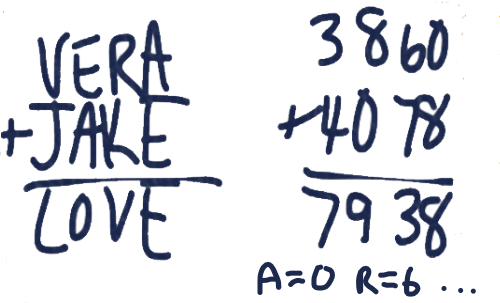 VERA
+JAKE
LOVE
3860
+4078
7938
A=0 R=6 ...